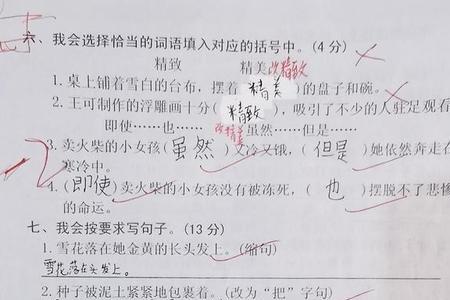 六、我会选择恰当的词语填入对应的括号中。(4分)
精致 精美 改精致
1.桌上铺着雪白的台布，摆着(精美)的盘子和碗。
2.王可制作的浮雕画十分(精致)，吸引了不少的人驻足观看
即使……也…… 改精美 虽然……但是……
3.卖火柴的小女孩(虽然)又冷又饿，(但是)她依然奔走在
寒冷中。
4.(即使)卖火柴的小女孩没有被冻死，(也)摆脱不了悲惨
的命运。
七、我会按要求写句子。(13分)
1.雪花落在她金黄的长头发上。(缩句)
雪花落在头发上。
2.种子被泥土紧紧地包裹着。(改为“把”字句)